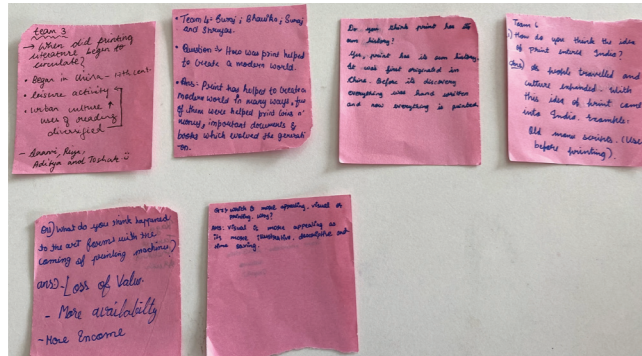 Team 3
→ When did printing
literature begin to
circulate?
• Began in China - 17th cent
• leisure activity
• urban culture ↑
uses of reading
diversified
- Saanvi, Riya,
Aditya and Toshik
• Team 4 = Suraj, Bhavika, Suraj
and Shreyas.
• Question = How was print helped
to create a modern world.
• Ans = Print has helped to create a
modern world in many ways, few
of them were helped print loins n'
money, important documents &
books which evolved the generati
on.
Do you think print has its
own history?
Yes, print has its own history.
It was first originated in
China. Before its discovery
everything was hand written
and now everything is printed.
Team 6
How do you think the idea
of print entered India?
Ans) As people travelled and
culture expanded. With
this idea of print came
into India. Example:
Old manu scripts. (Used
before printing).
Qu) What do you think happened
to the art forms with the
coming of printing machine?
ans) - Loss of Value.
- More availability
- More Income
which is more appealing, visual or
printing. Why?
Ans: Visual is more appealing as
its more illustrative, descriptive and
time saving.